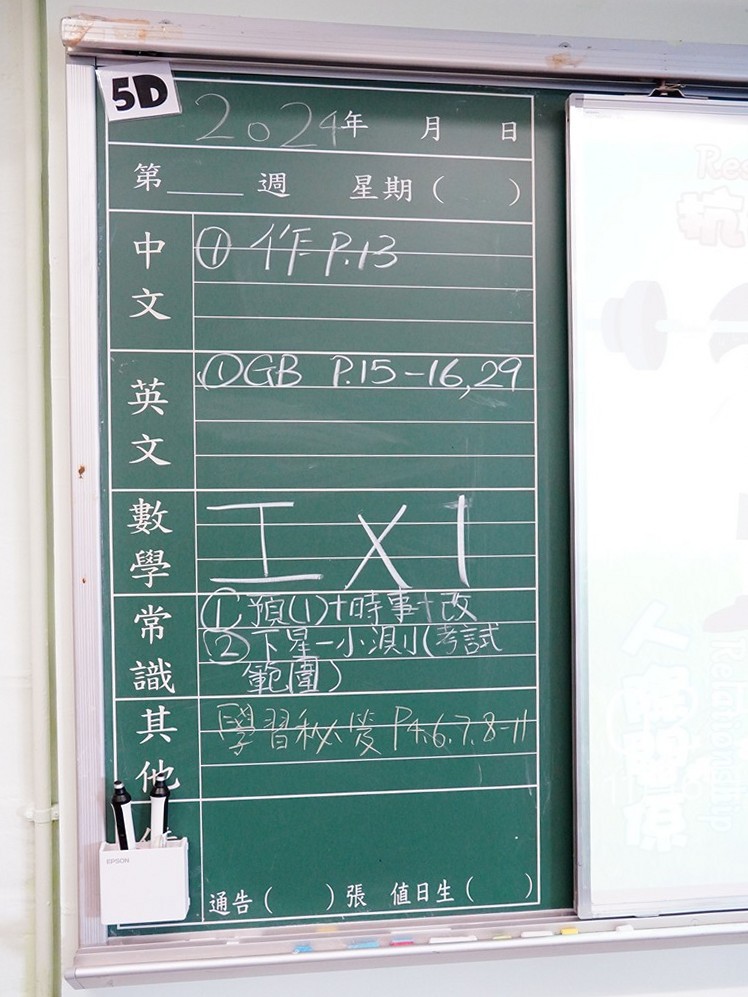 5D
2024年 月 日
第____週 星期( )
中文
① 作 P.13
英文
① GB P.15-16,29
數學
工 X 1
常識
① 預(1)+時事+改
② 下星一小測(考試
範圍)
其他
學習秘笈 P4.6.7.8-11
EPSON
通告( )張 值日生( )
人
Relationship